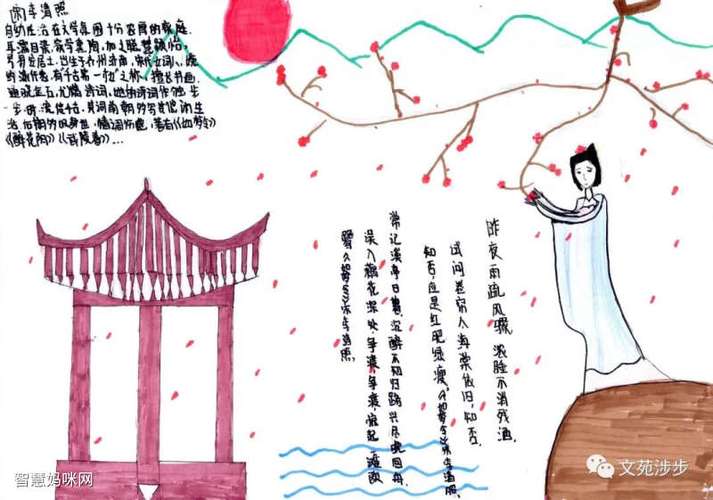 宋)李清照
自幼生活在文学氛围十分浓厚的家庭,
耳濡目染,家学熏陶,加之聪慧颖悟,
号易安居士,出生于齐州济南,宋代女词人,婉
约派代表,有"千古第一才女"之称,擅长书画,
通晓金石,尤精诗词,她的诗词作独步
一步时,流传千古,其词前期多写其悠闲生
活,后期多叹身世,情调伤感,著有《如梦令》
《醉花阴》《武陵春》...
昨夜雨疏风骤 浓睡不消残酒,
试问卷帘人 海棠依旧,知否,
知否,应是红肥绿瘦。《如梦令》李清照。
常记溪亭日暮,沉醉不知归路 兴尽晚回舟,
误入藕花深处,争渡,争渡,惊起 滩鸥
鹭《如梦令》李清照。
智慧妈咪网
文苑涉步